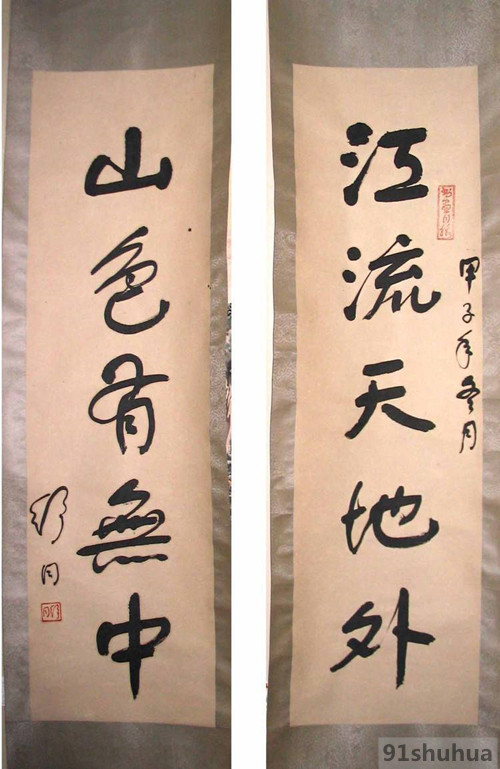 江流天地外
甲子年冬月
山色有無中
舒同
91shuhua